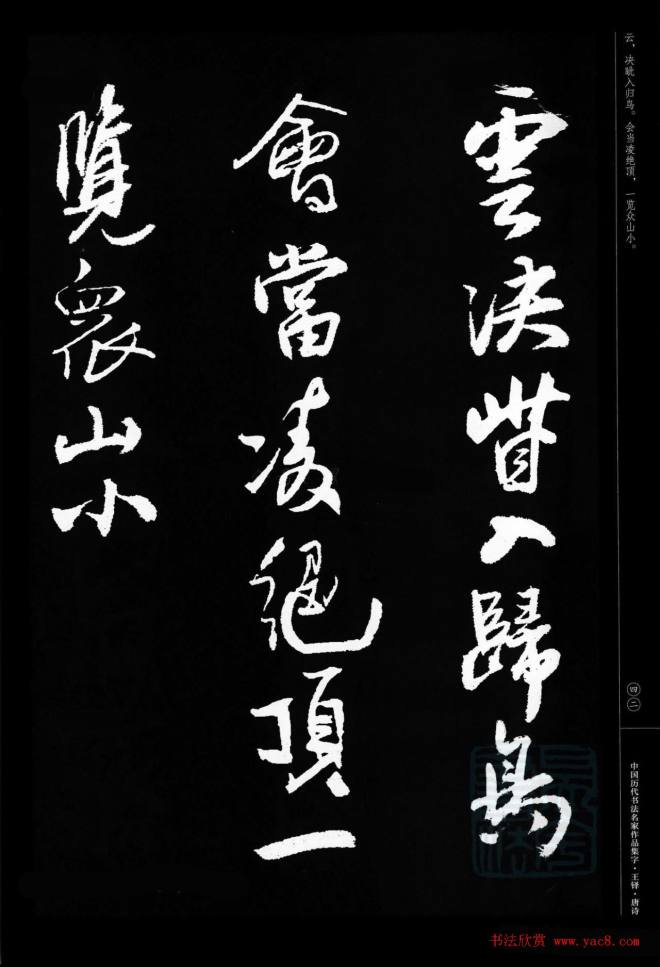 云，决眦入归鸟。会当凌绝顶，一览众山小。
雲決眥入歸鳥
會當凌絕頂一
覽衆山小
四二
中国历代书法名家作品集字·王铎·唐诗
书法欣赏 www.yac8.com